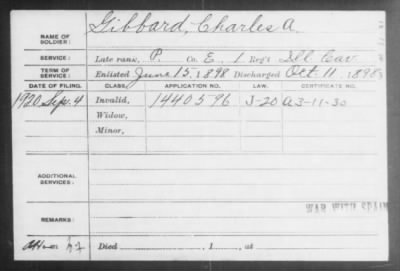 NAME OF SOLDIER: Gibbard, Charles A.
SERVICE: Late rank, P. Co. E, 1 Reg't Ill Cav
TERM OF SERVICE: Enlisted June 15, 1898 Discharged Oct. 11, 1898
DATE OF FILING. CLASS. APPLICATION NO. LAW. CERTIFICATE NO.
1920 Sep. 4 Invalid, 1440596 J-20 a 3-11-30
Widow,
Minor,
ADDITIONAL SERVICES:
WAR WITH SPAIN
REMARKS:
Died , 1 , at